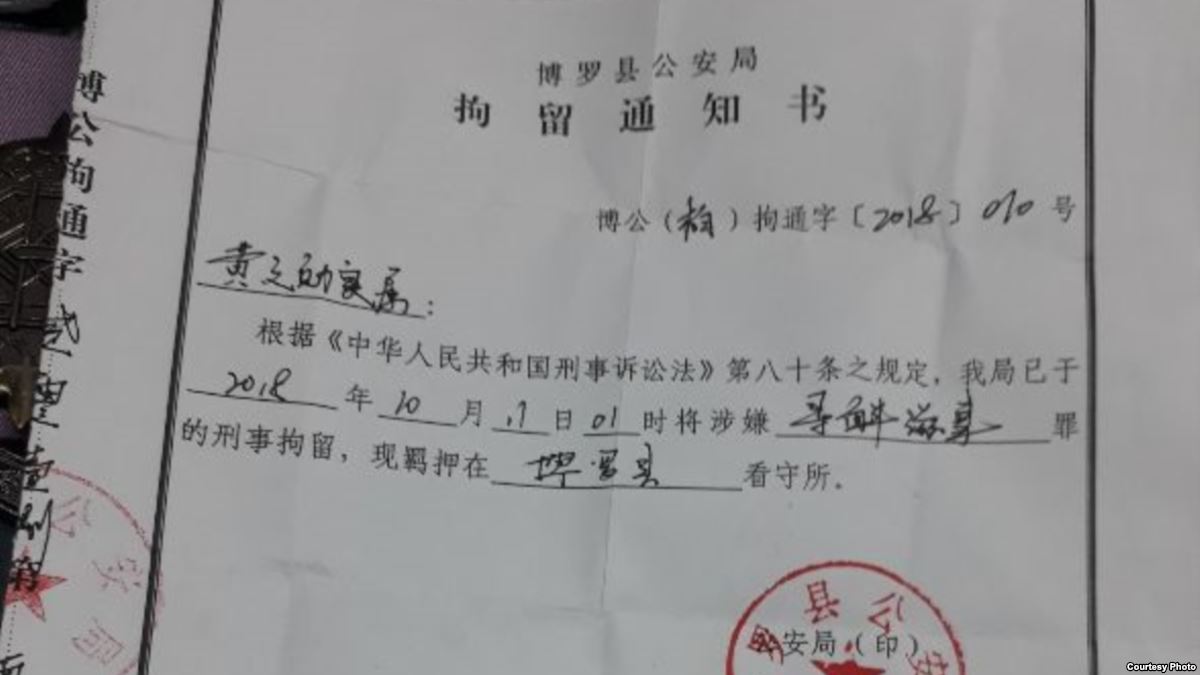 博罗县公安局
拘留通知书
博公（ ）拘通字〔2018〕010号
黄 家属：
根据《中华人民共和国刑事诉讼法》第八十条之规定，我局已于
2018年10月 日01时将涉嫌寻衅滋事罪
的刑事拘留，现羁押在博罗县看守所。
公安局（印）
县公安
博公拘通字
公安局
Courtesy Photo